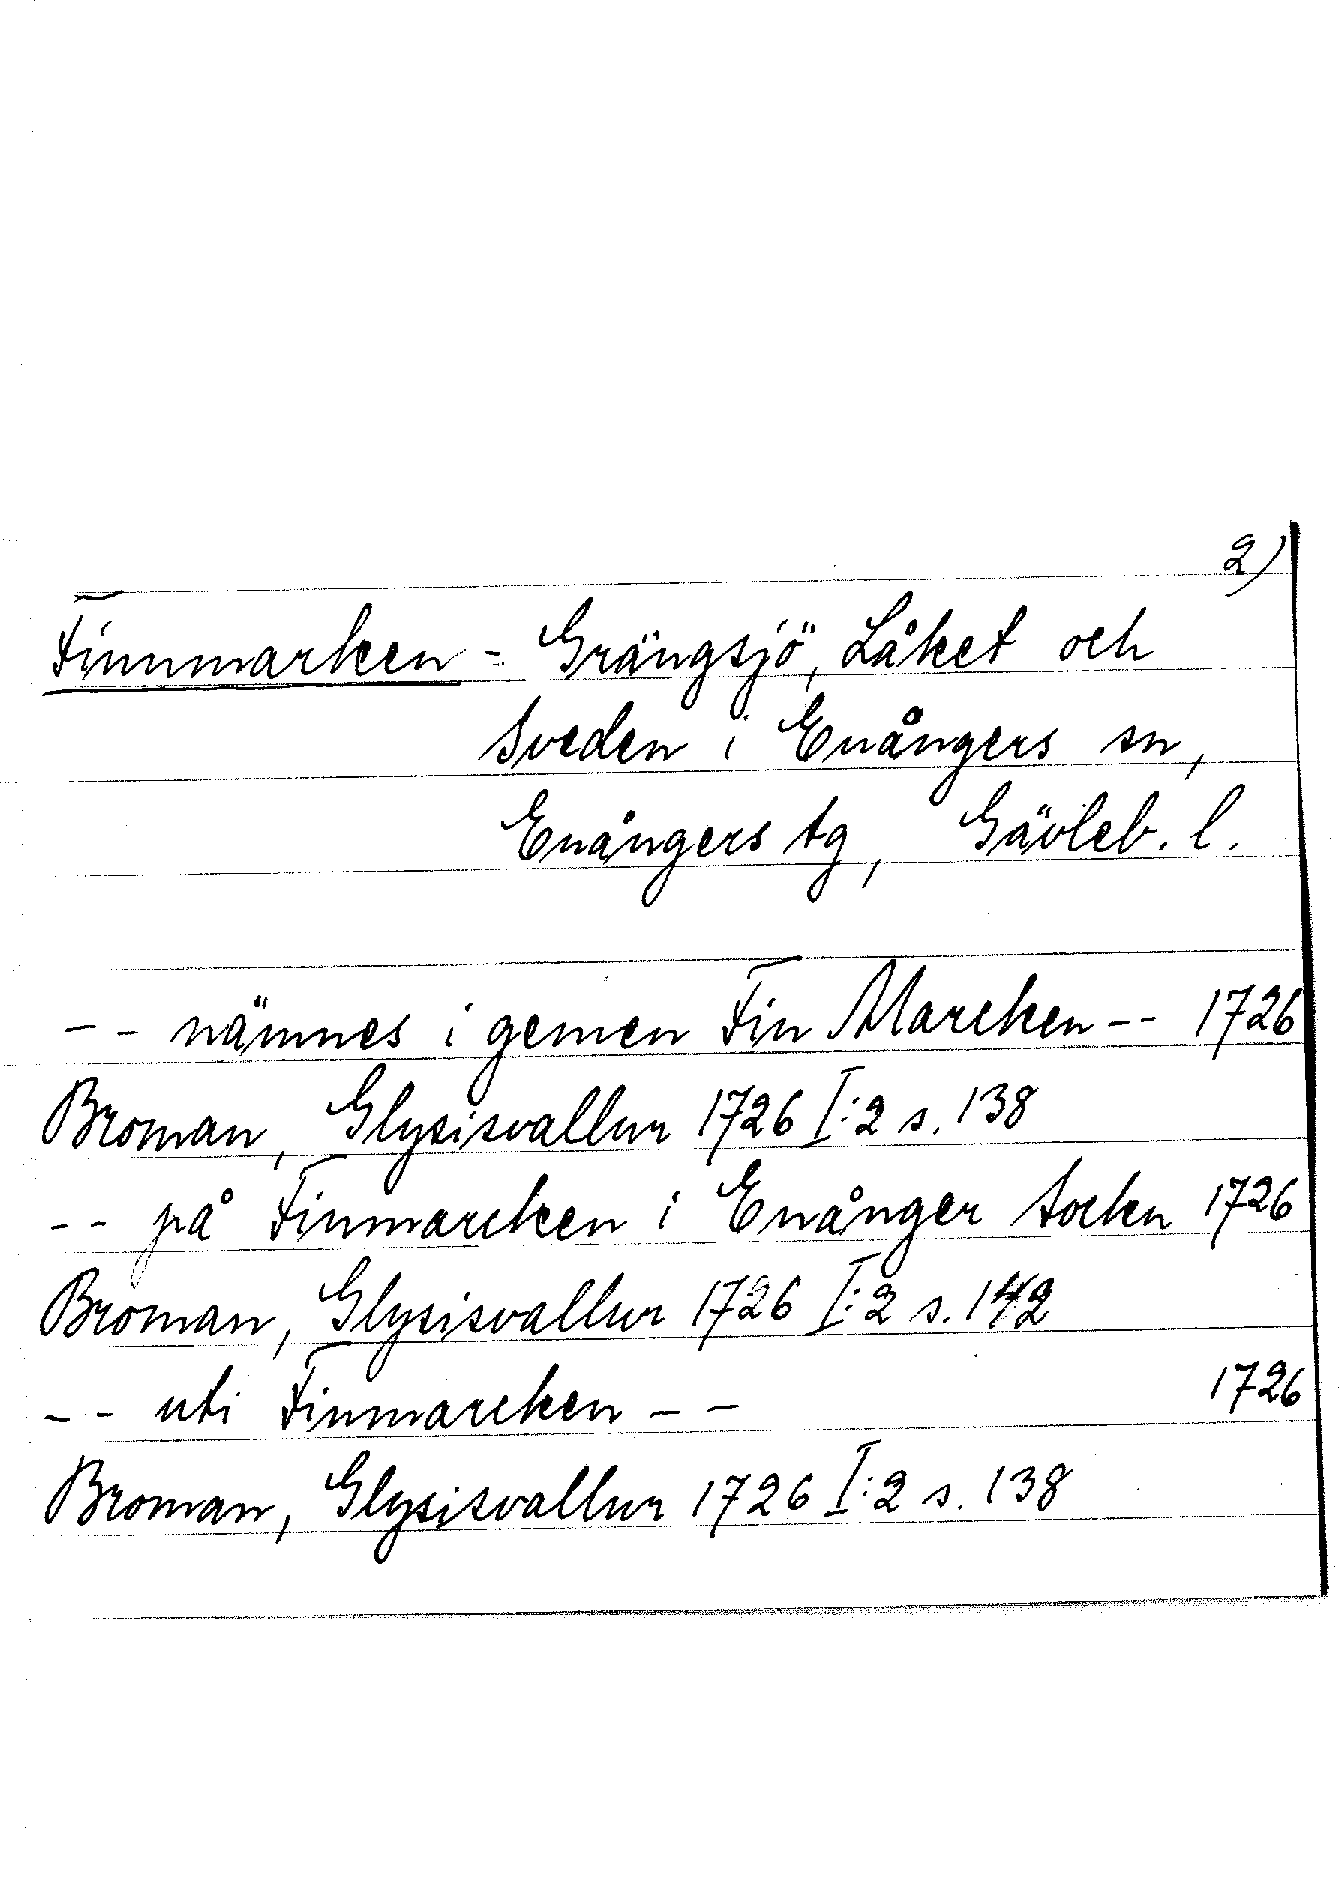 2)
Finnmarken - Grängsjö, Låket och
Sveden i Enångers sn,
Enångers tg, Gävleb. l.
-- nämnes i gemen Fin Marcken -- 1726
Broman, Glysisvallur 1726 I:2 s. 138
-- på Finmarcken i Enånger Sockn 1726
Broman, Glysisvallur 1726 I:2 s. 142
-- uti Finmarcken -- 1726
Broman, Glysisvallur 1726 I:2 s. 138